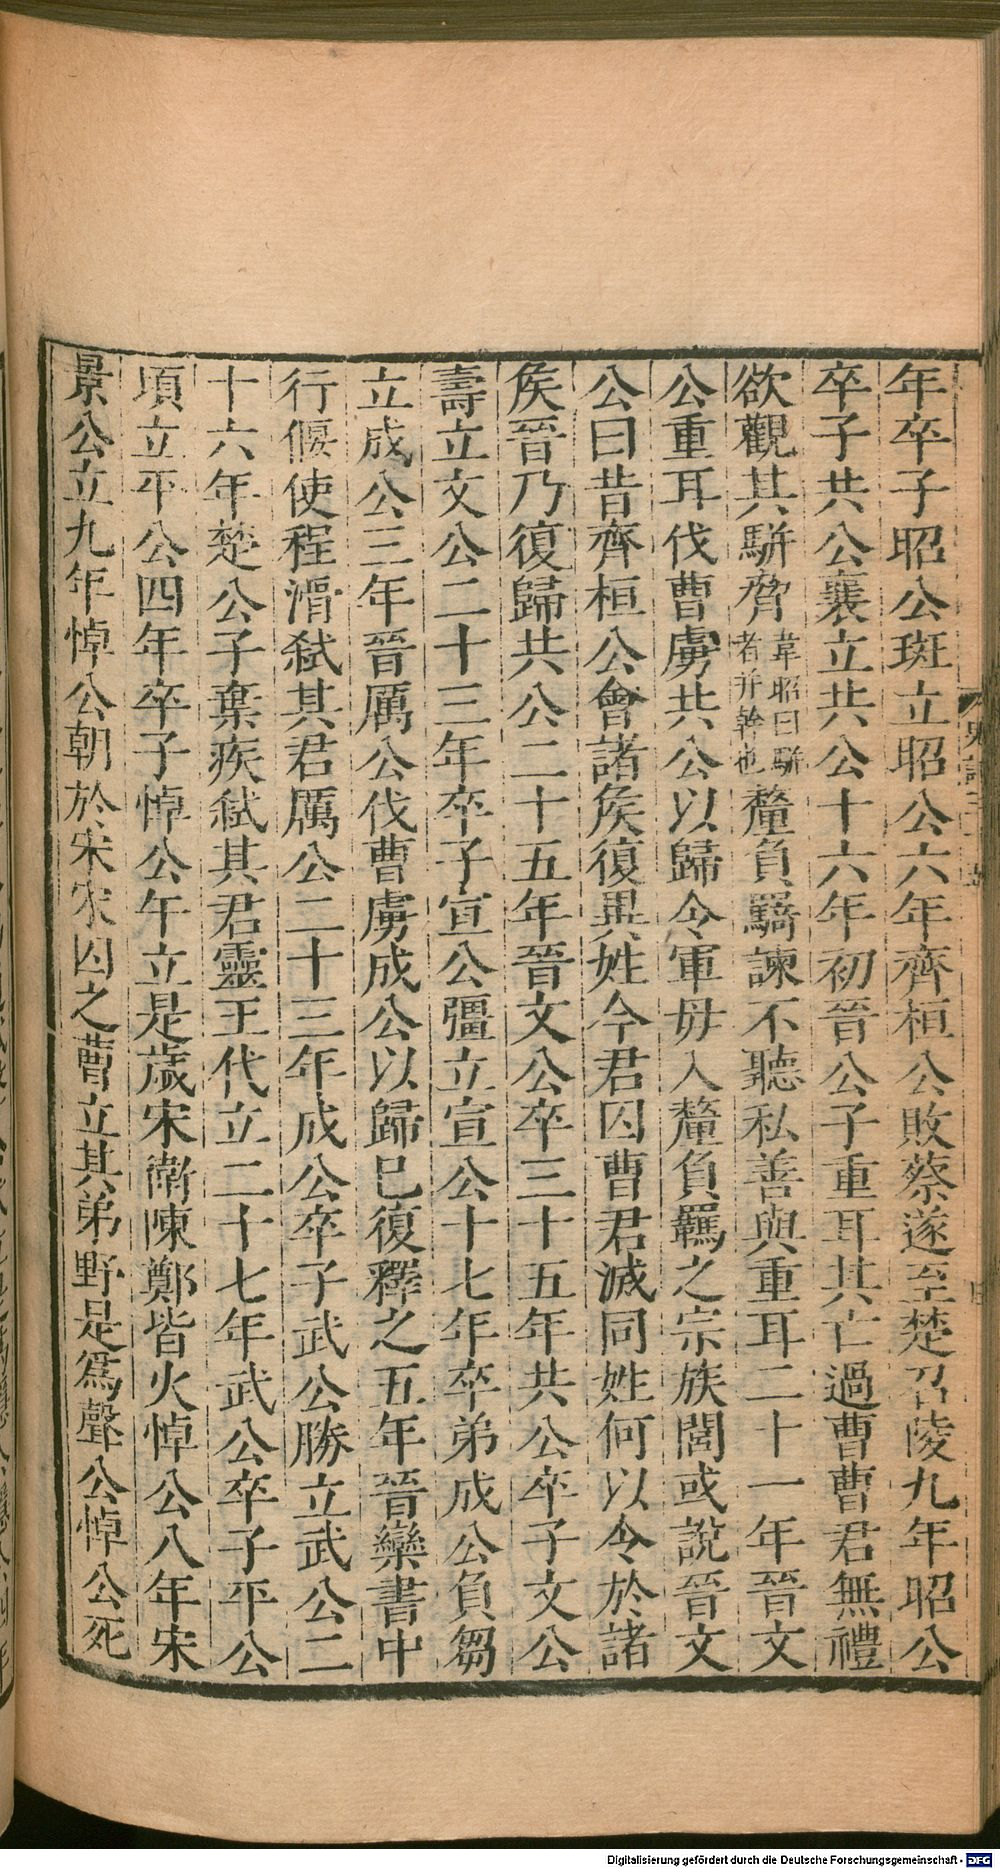 年卒子昭公班立昭公六年齊桓公敗蔡遂至楚召陵九年昭公
卒子共公襄立共公十六年初晉公子重耳其亡過曹曹君無禮
欲觀其駢脅韋昭曰駢者并幹也釐負羈諫不聽私善與重耳二十一年晉文
公重耳伐曹虜共公以歸令軍毋入釐負羈之宗族閭或說晉文
公曰昔齊桓公會諸侯復異姓今君囚曹君滅同姓何以令於諸
侯晉乃復歸共公二十五年晉文公卒三十五年共公卒子文公
壽立文公二十三年卒子宣公彊立宣公十七年卒弟成公負芻
立成公三年晉厲公伐曹虜成公以歸巳復釋之五年晉欒書中
行偃使程滑弑其君厲公二十三年成公卒子武公勝立武公二
十六年楚公子棄疾弑其君靈王代立二十七年武公卒子平公
頃立平公四年卒子悼公午立是歲宋衛陳鄭皆火悼公八年宋
景公立九年悼公朝於宋宋囚之曹立其弟野是爲聲公悼公死
Digitalisierung gefördert durch die Deutsche Forschungsgemeinschaft - DFG